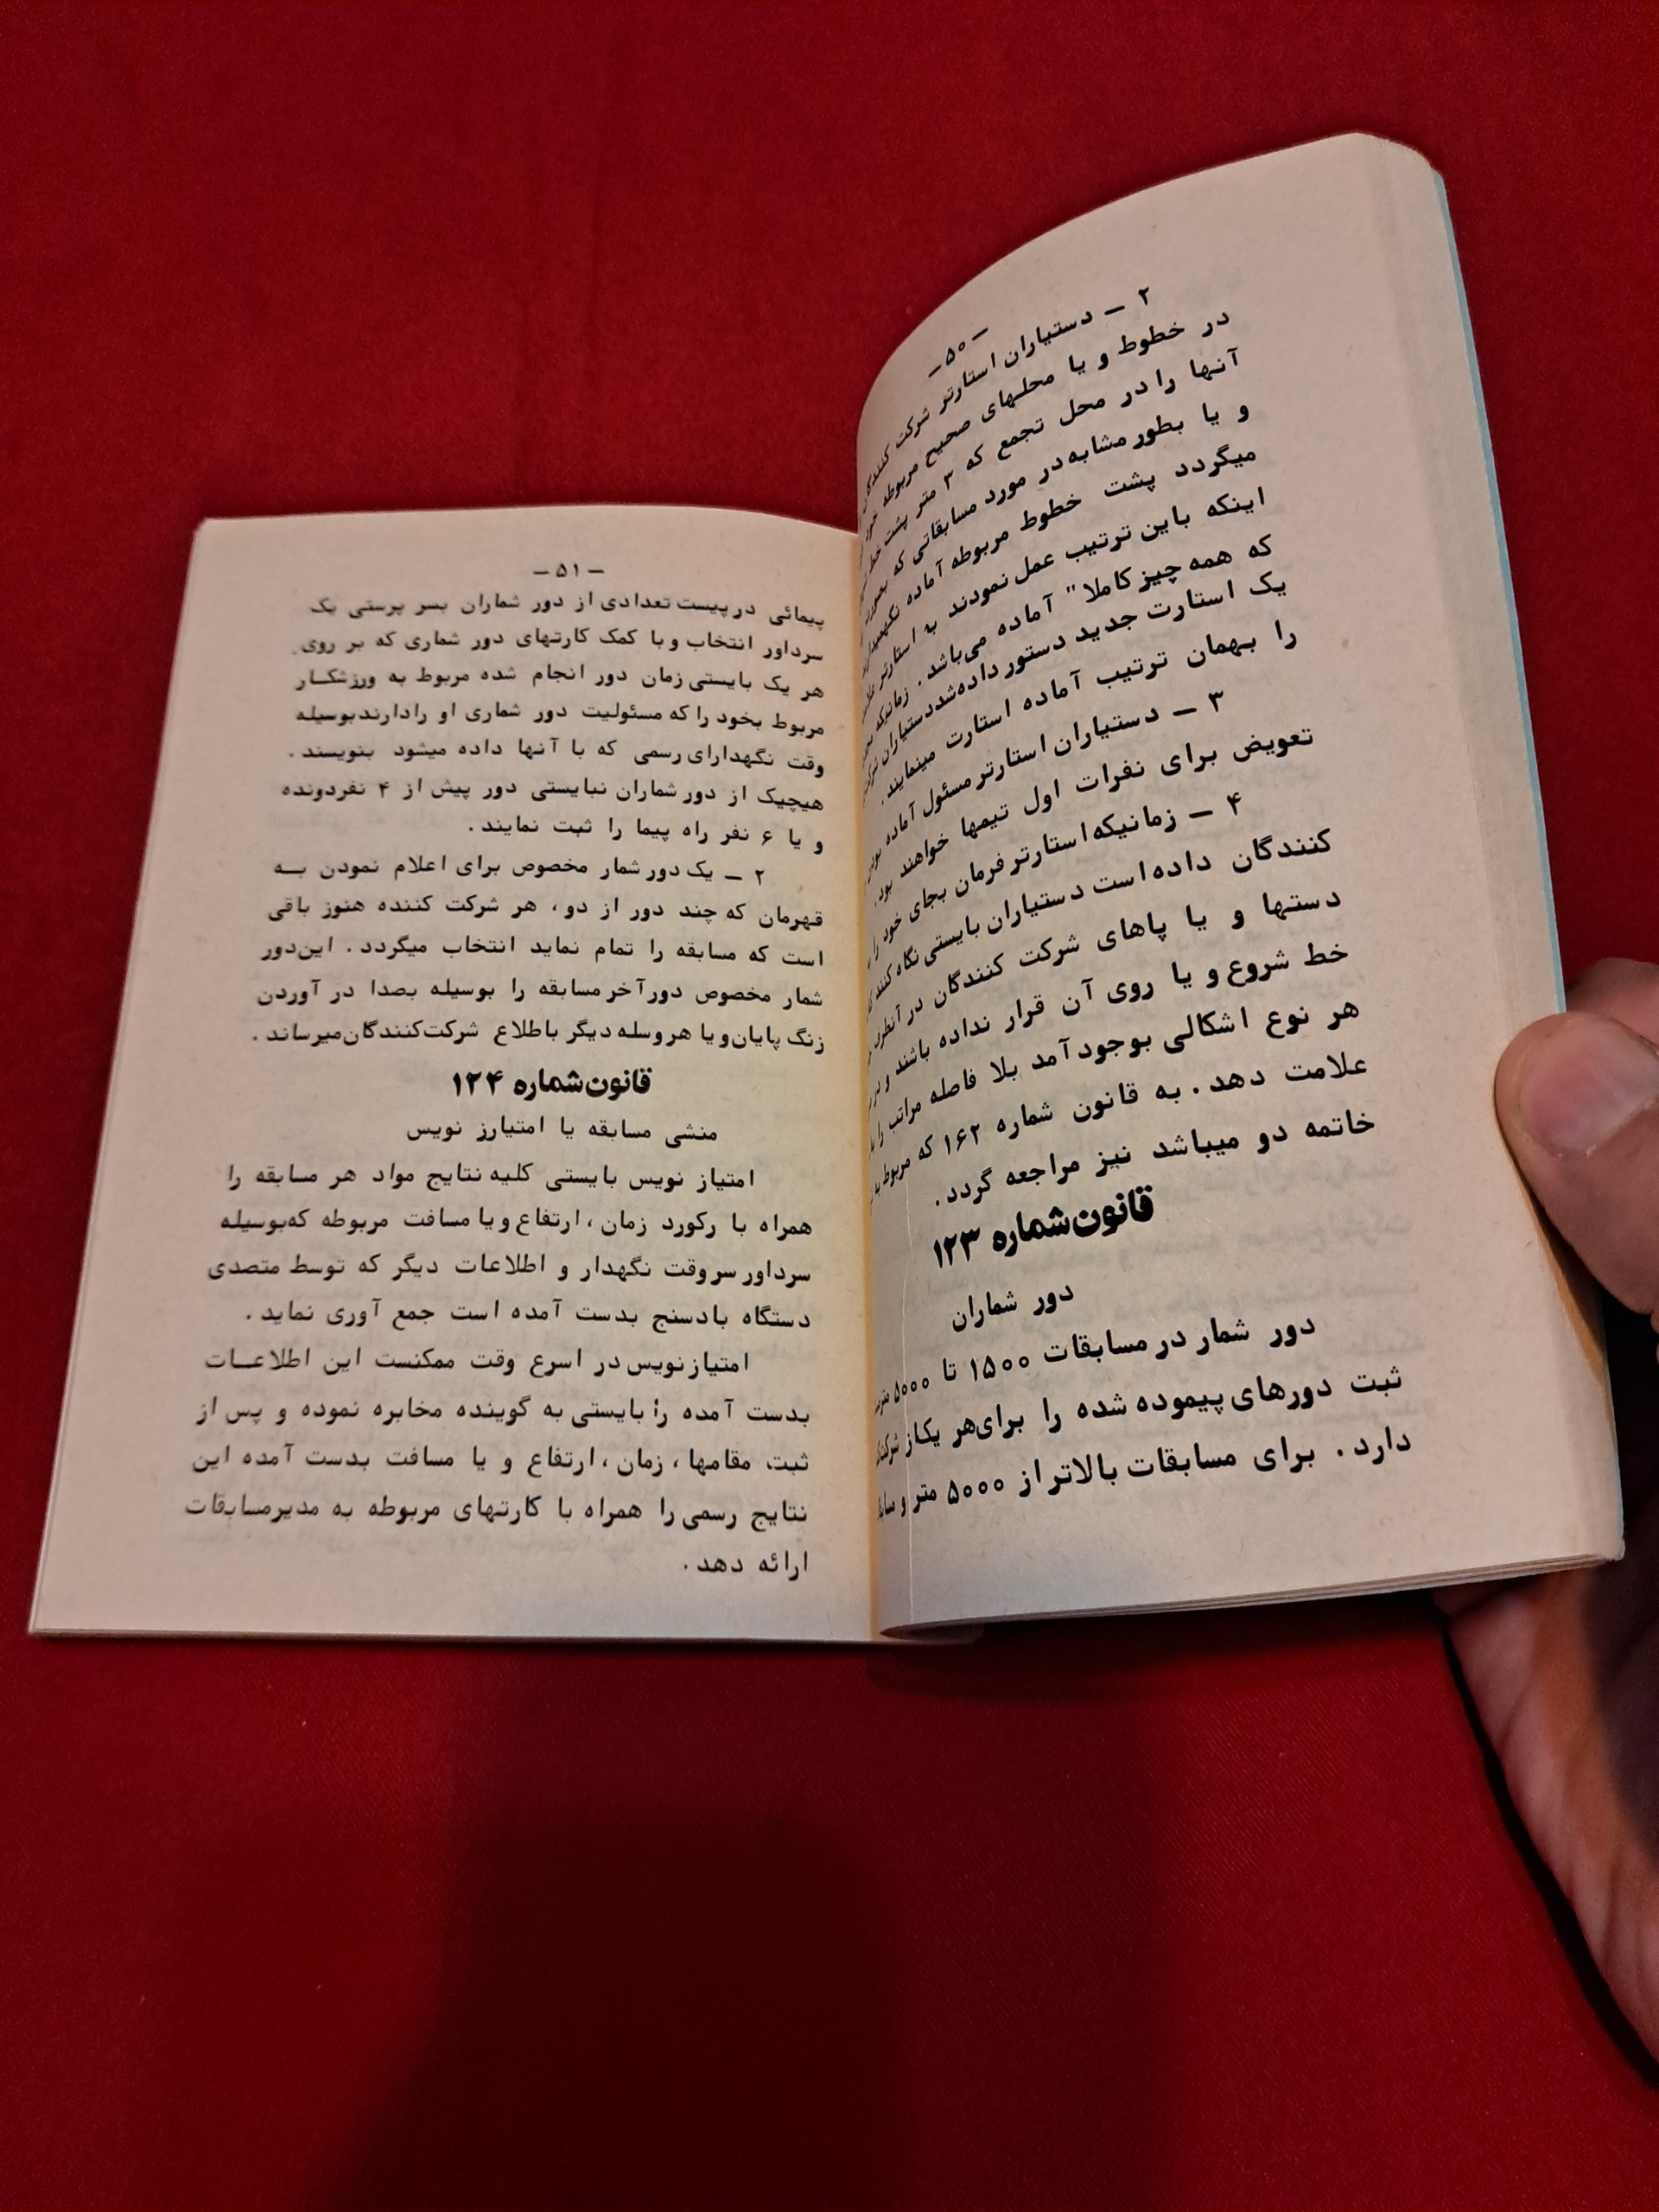 -۵۰-
۲ - دستیاران استارتر شرکت
در خطوط و یا محلهای صحیح مربوطه
آنها را در محل تجمع که ۳ متر پشت خط
و یا بطور مشابه در مورد مسابقاتی که
میگردد پشت خطوط مربوطه آماده
اینکه باین ترتیب عمل نمودند به استارتر
که همه چیز کاملا" آماده می‌باشد. زمانیکه
یک استارت جدید دستور داده‌شد دستیاران
را بهمان ترتیب آماده استارت مینمایند.
۳ - دستیاران استارتر مسئول آماده
تعویض برای نفرات اول تیمها خواهند بود.
۴ - زمانیکه استارتر فرمان بجای خود را
کنندگان داده است دستیاران بایستی نگاه کنند
دستها و یا پاهای شرکت کنندگان در آنطرف
خط شروع و یا روی آن قرار نداده باشند و
هر نوع اشکالی بوجود آمد بلا فاصله مراتب را
علامت دهد. به قانون شماره ۱۶۲ که مربوط
خاتمه دو میباشد نیز مراجعه گردد.
قانون شماره ۱۲۳
دور شماران
دور شمار در مسابقات ۱۵۰۰ تا ۵۰۰۰
ثبت دورهای پیموده شده را برای‌هر یک‌از
دارد. برای مسابقات بالاتر از ۵۰۰۰ متر و
-۵۱-
پیمائی در پیست تعدادی از دور شماران بسر پرستی یک
سرداور انتخاب و با کمک کارتهای دور شماری که بر روی
هر یک بایستی زمان دور انجام شده مربوط به ورزشکار
مربوط بخود را که مسئولیت دور شماری او را دارند بوسیله
وقت نگهدارای رسمی که با آنها داده میشود بنویسند.
هیچیک از دور شماران نبایستی دور پیش از ۴ نفر دونده
و یا ۶ نفر راه پیما را ثبت نمایند.
۲ - یک دور شمار مخصوص برای اعلام نمودن به
قهرمان که چند دور از دو، هر شرکت کننده هنوز باقی
است که مسابقه را تمام نماید انتخاب میگردد. این‌دور
شمار مخصوص دور آخر مسابقه را بوسیله بصدا در آوردن
زنگ پایان‌و یا هر وسله دیگر باطلاع شرکت‌کنندگان‌میرساند.
قانون شماره ۱۲۴
منشی مسابقه یا امتیارز نویس
امتیاز نویس بایستی کلیه نتایج مواد هر مسابقه را
همراه با رکورد زمان، ارتفاع و یا مسافت مربوطه که‌بوسیله
سرداور سر وقت نگهدار و اطلاعات دیگر که توسط متصدی
دستگاه بادسنج بدست آمده است جمع آوری نماید.
امتیاز نویس در اسرع وقت ممکنست این اطلاعات
بدست آمده را بایستی به گوینده مخابره نموده و پس از
ثبت مقامها، زمان، ارتفاع و یا مسافت بدست آمده این
نتایج رسمی را همراه با کارتهای مربوطه به مدیرمسابقات
ارائه دهد.